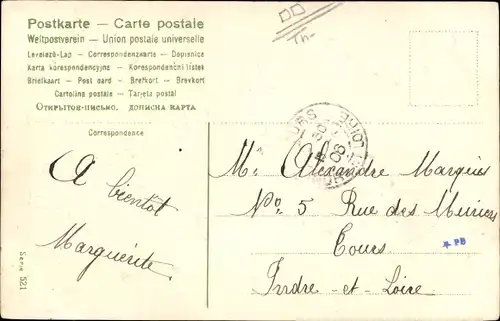 Postkarte — Carte postale
Weltpostverein — Union postale universelle
Levelező-Lap — Correspondenzkarte — Dopisnice
Karta korespondencyjna — Korespondenčni listek
Briefkaart — Post card — Brefkort — Brevkort
Cartolina postale — Tarjeta postal
Открытое-письмо. дописна карта
Th-
Correspondence
A bientôt
Marguérite.
Mr Alexandre Marquès
No 5 Rue des Muriers
Tours
Indre-et-Loire
* PB
Serie 521